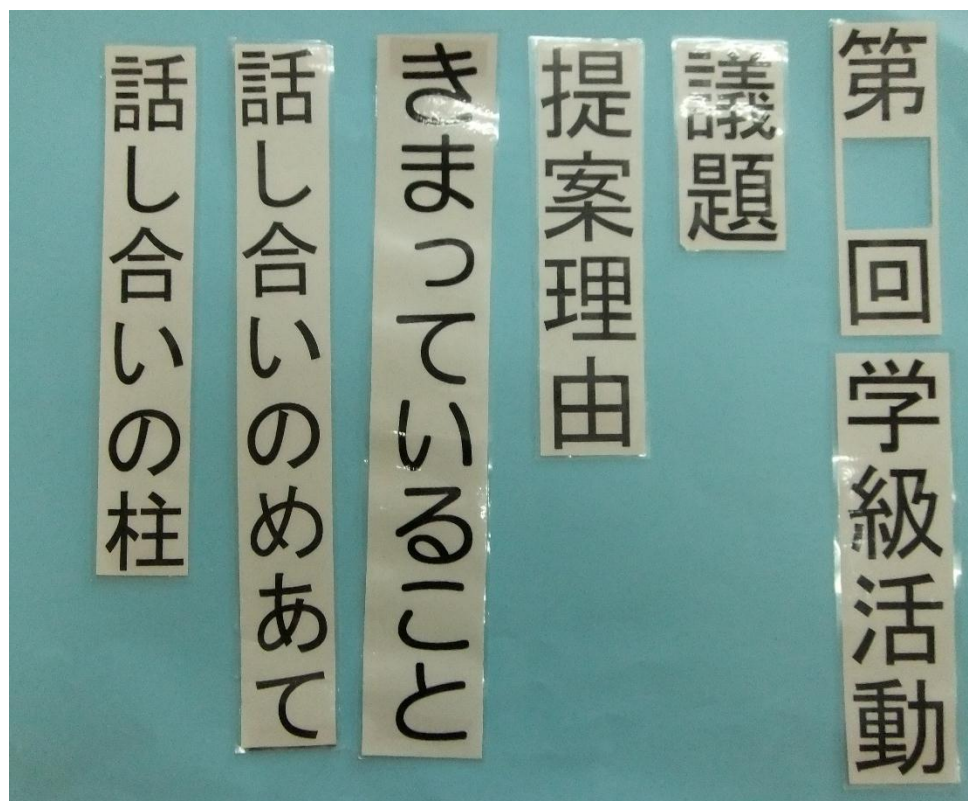 第□回
学級活動
議題
提案理由
きまっていること
話し合いのめあて
話し合いの柱